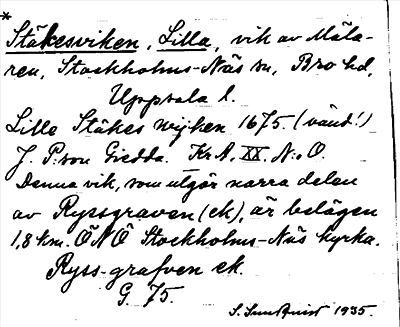 *
Stäkesviken, Lilla, vik av Mäla-
ren, Stockholms-Näs sn, Bro hd,
Uppsala l.
Lille Stäkes wijken 1675. (vänd!)
J. P:son Giedda. Kr.A. XX. N:o O.
Denna vik, som utgör norra delen
av Ryssgraven (ek), är belägen
1,8 km. ÖNÖ Stockholms-Näs kyrka.
Ryss-grafven ek.
G. 75.
S. Sundquist 1935.